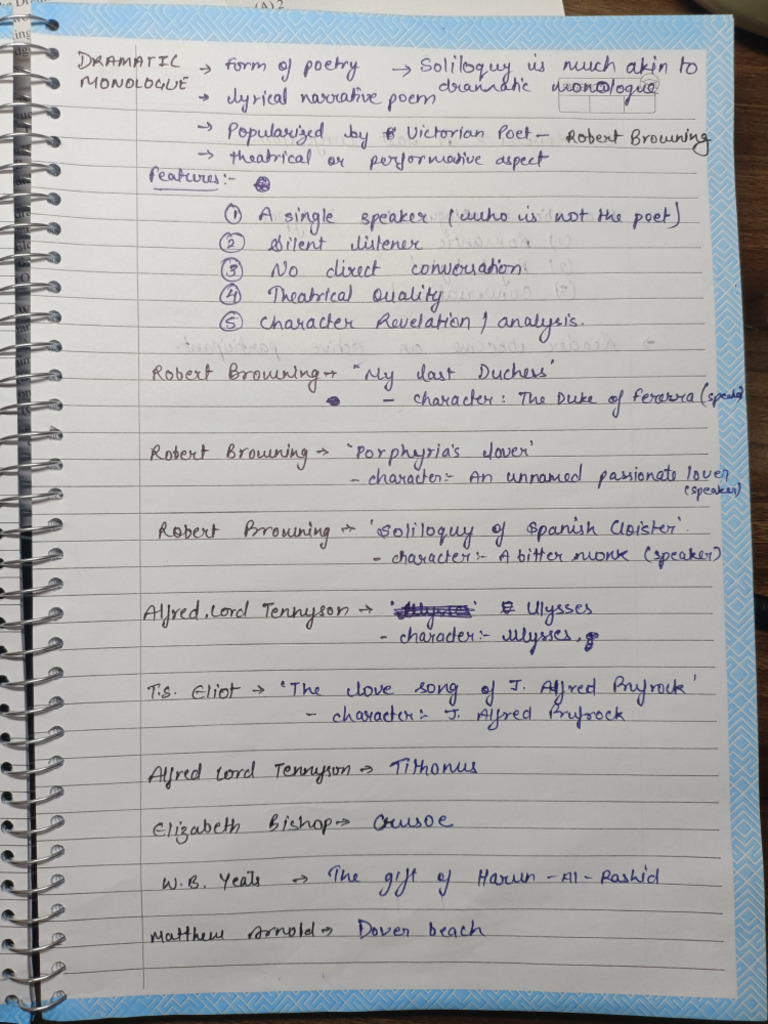 (A) 2
DRAMATIC → form of poetry → Soliloquy is much akin to
MONOLOGUE → lyrical narrative poem dramatic monologue
→ Popularized by Victorian Poet - Robert Browning
→ theatrical or performative aspect
Features:-
① A single speaker (who is not the poet)
② Silent listener
③ No direct conversation
④ Theatrical Quality
⑤ Character Revelation / analysis.
Robert Browning → "My last Duchess'
- character: The Duke of Ferarra (speaker)
Robert Browning → 'Porphyria's lover'
- character:- An unnamed passionate lover
(speaker)
Robert Browning → 'Soliloquy of Spanish Cloister'.
- character:- A bitter monk (speaker)
Alfred, Lord Tennyson → Ulysses
- character:- Ulysses,
T.S. Eliot → 'The love song of J. Alfred Prufrock'
- character:- J. Alfred Prufrock
Alfred Lord Tennyson → Tithonus
Elizabeth Bishop → Crusoe
W.B. Yeats → The gift of Harun-Al-Rashid
Matthew Arnold → Dover beach